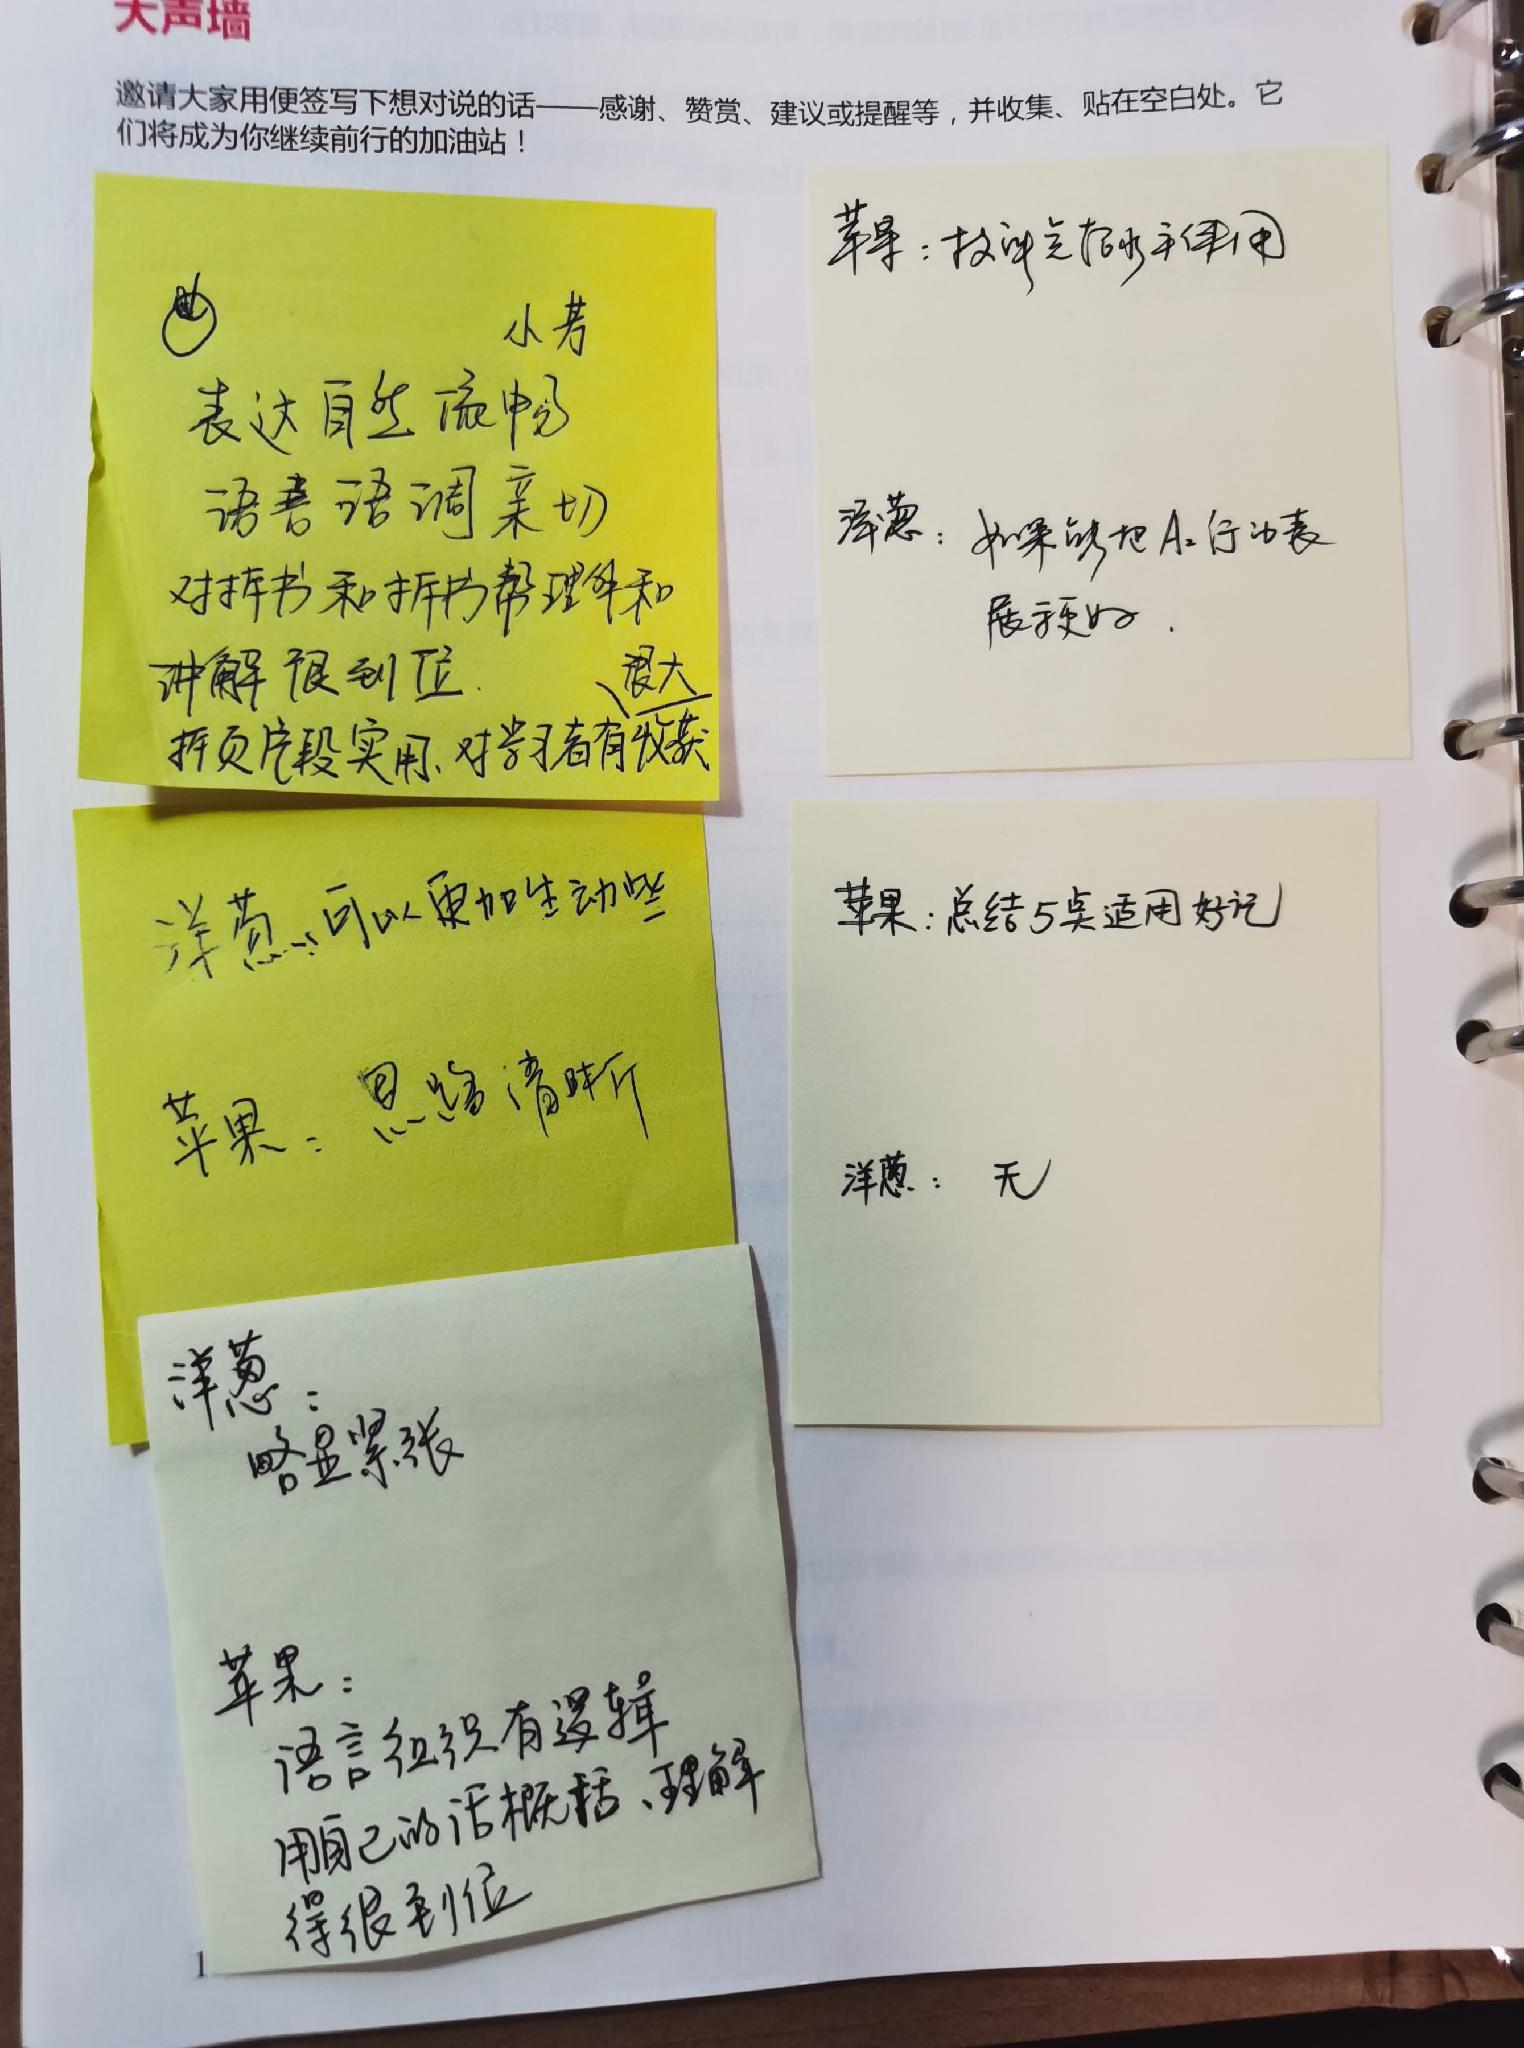 大声墙
邀请大家用便签写下想对说的话——感谢、赞赏、建议或提醒等，并收集、贴在空白处。它
们将成为你继续前行的加油站！
小芳
表达自然流畅
语音语调亲切
对拆书和拆书帮理解和
讲解很到位.
很大
拆页片段实用、对学习者有收获
洋葱：可以更加生动些
苹果：思路清晰
洋葱：
略显紧张
苹果：
语言组织有逻辑
用自己的话概括、理解
得很到位
苹果：
洋葱：如果能把A2行动表
展示更好.
苹果：总结5点适用好记
洋葱：无
1